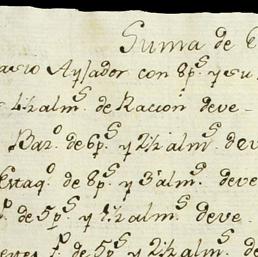 Suma de
Aysador con 8p.s y su
4½ alm.s de Racion deve
Baz.o de 6p.s y 2½ alm.s dev
de 8p.s y 3 alm.s deve
de 5p.s y 1½ alm.s deve
de 5p.s y 2½ alm.s de